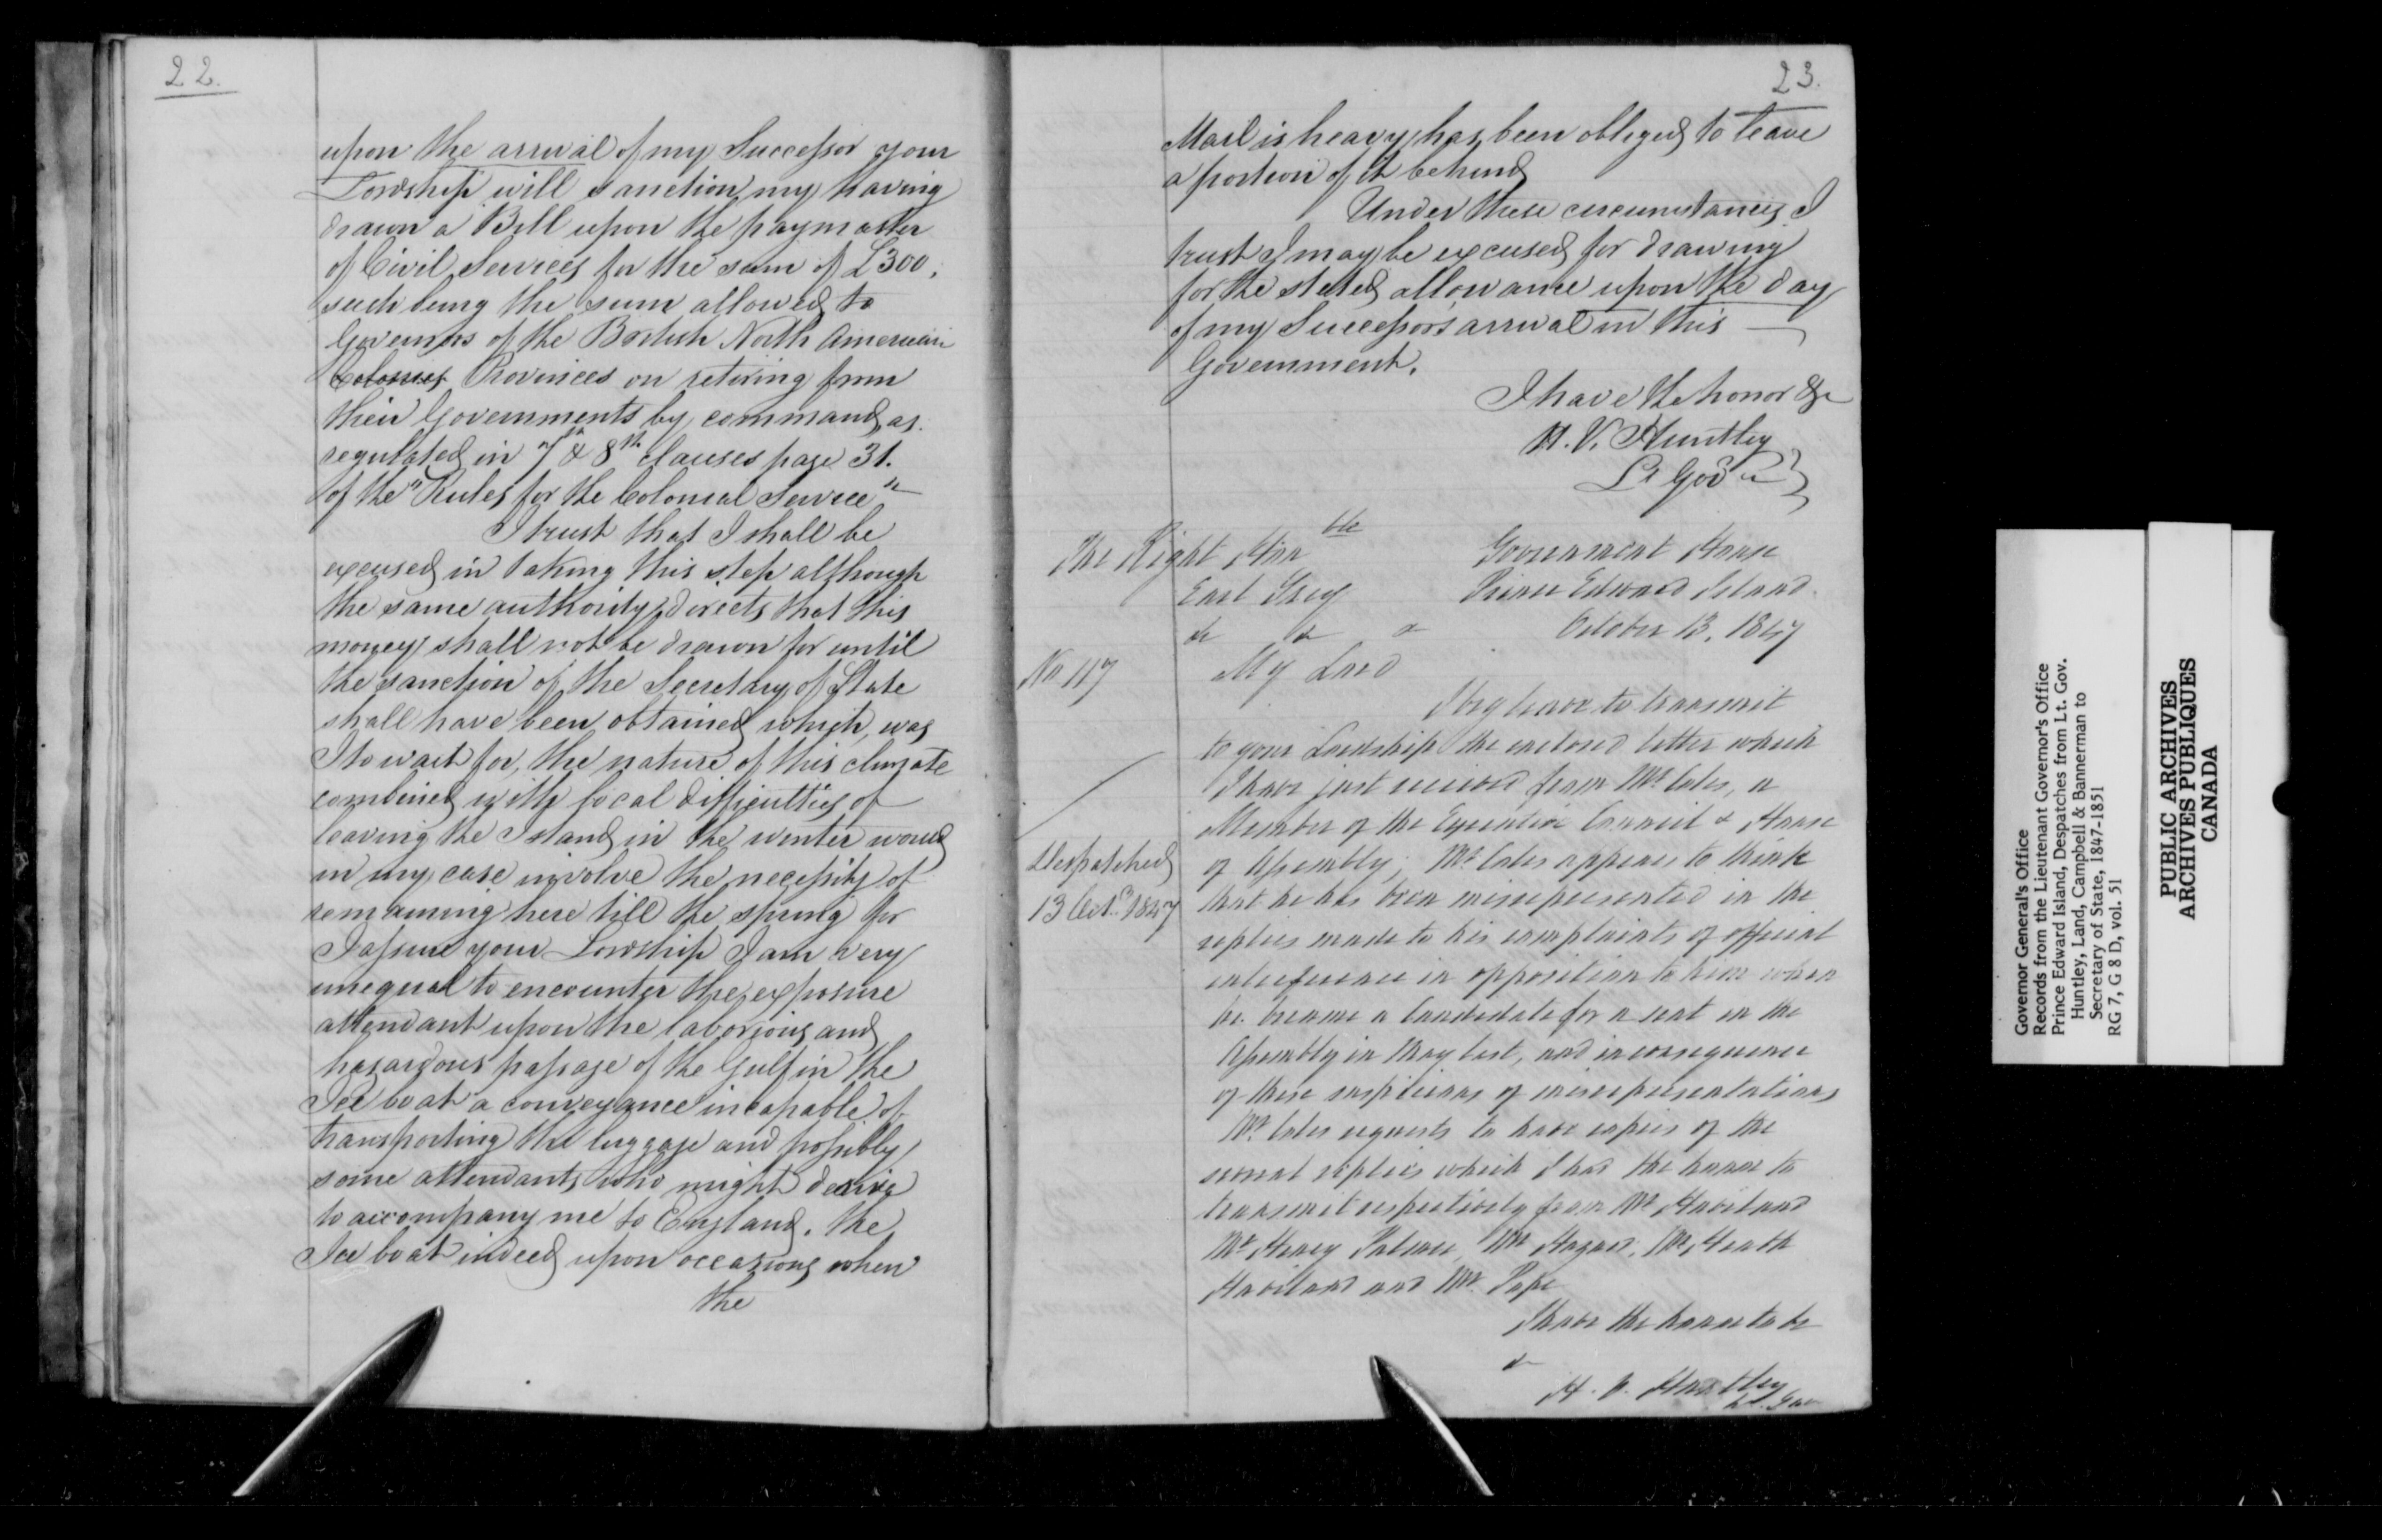 22.
upon the arrival of my Successor your
Lordship will sanction my having
drawn a Bill upon the paymaster
of Civil Services for the sum of £300,
such being the sum allowed to
Governors of the British North American
Colonies Provinces on retiring from
their Governments by command, as
regulated in 7th & 8th clauses page 31.
of the "Rules for the Colonial Service"
I trust that I shall be
excused in taking this step although
the same authority directs that this
money shall not be drawn for until
the sanction of the Secretary of State
shall have been obtained which, was
I to wait for, the nature of this climate
combined with local difficulties of
leaving the Island in the winter would
in my case involve the necessity of
remaining here till the spring for
I assure your Lordship I am very
unequal to encounter the exposure
attendant upon the laborious and
hazardous passage of the Gulf in the
Ice boat a conveyance incapable of
transporting the luggage and possibly
some attendants who might desire
to accompany me to England. the
Ice boat indeed upon occasions when
the
23.
Mail is heavy has been obliged to leave
a portion of it behind
Under these circumstances I
trust I may be excused for drawing
for the stated allowance upon the day
of my Successors arrival in this
Government.
I have the honor &c
H. V. Huntley
Lt Govr
The Right Honble
Earl Grey
& & &
Government House
Prince Edward Island
October 13, 1847
No 117
My Lord
I beg leave to transmit
to your Lordship the enclosed letter which
I have just received from Mr Coles, a
Member of the Executive Council & House
of Assembly; Mr Coles appears to think
that he has been misrepresented in the
replies made to his complaints of official
interference in opposition to him when
he became a Candidate for a seat in the
Assembly in May last, and in consequence
of these suspicions of misrepresentations
Mr Coles requests to have copies of the
several replies which I had the honor to
transmit respectively from Mr Haviland
Mr Henry Palmer, Mr Hazard, Mr Heath
Haviland and Mr Pope
I have the honor to be
&
H. V. Huntley
Lt. Gov
Despatched
13 Oct. 1847
Governor General's Office
Records from the Lieutenant Governor's Office
Prince Edward Island, Despatches from Lt. Gov.
Huntley, Land, Campbell & Bannerman to
Secretary of State, 1847-1851
RG 7, G 8 D, vol. 51
PUBLIC ARCHIVES
ARCHIVES PUBLIQUES
CANADA